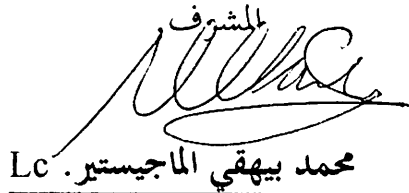 المشرف
محمد بيهقي الماجيستير. Lc